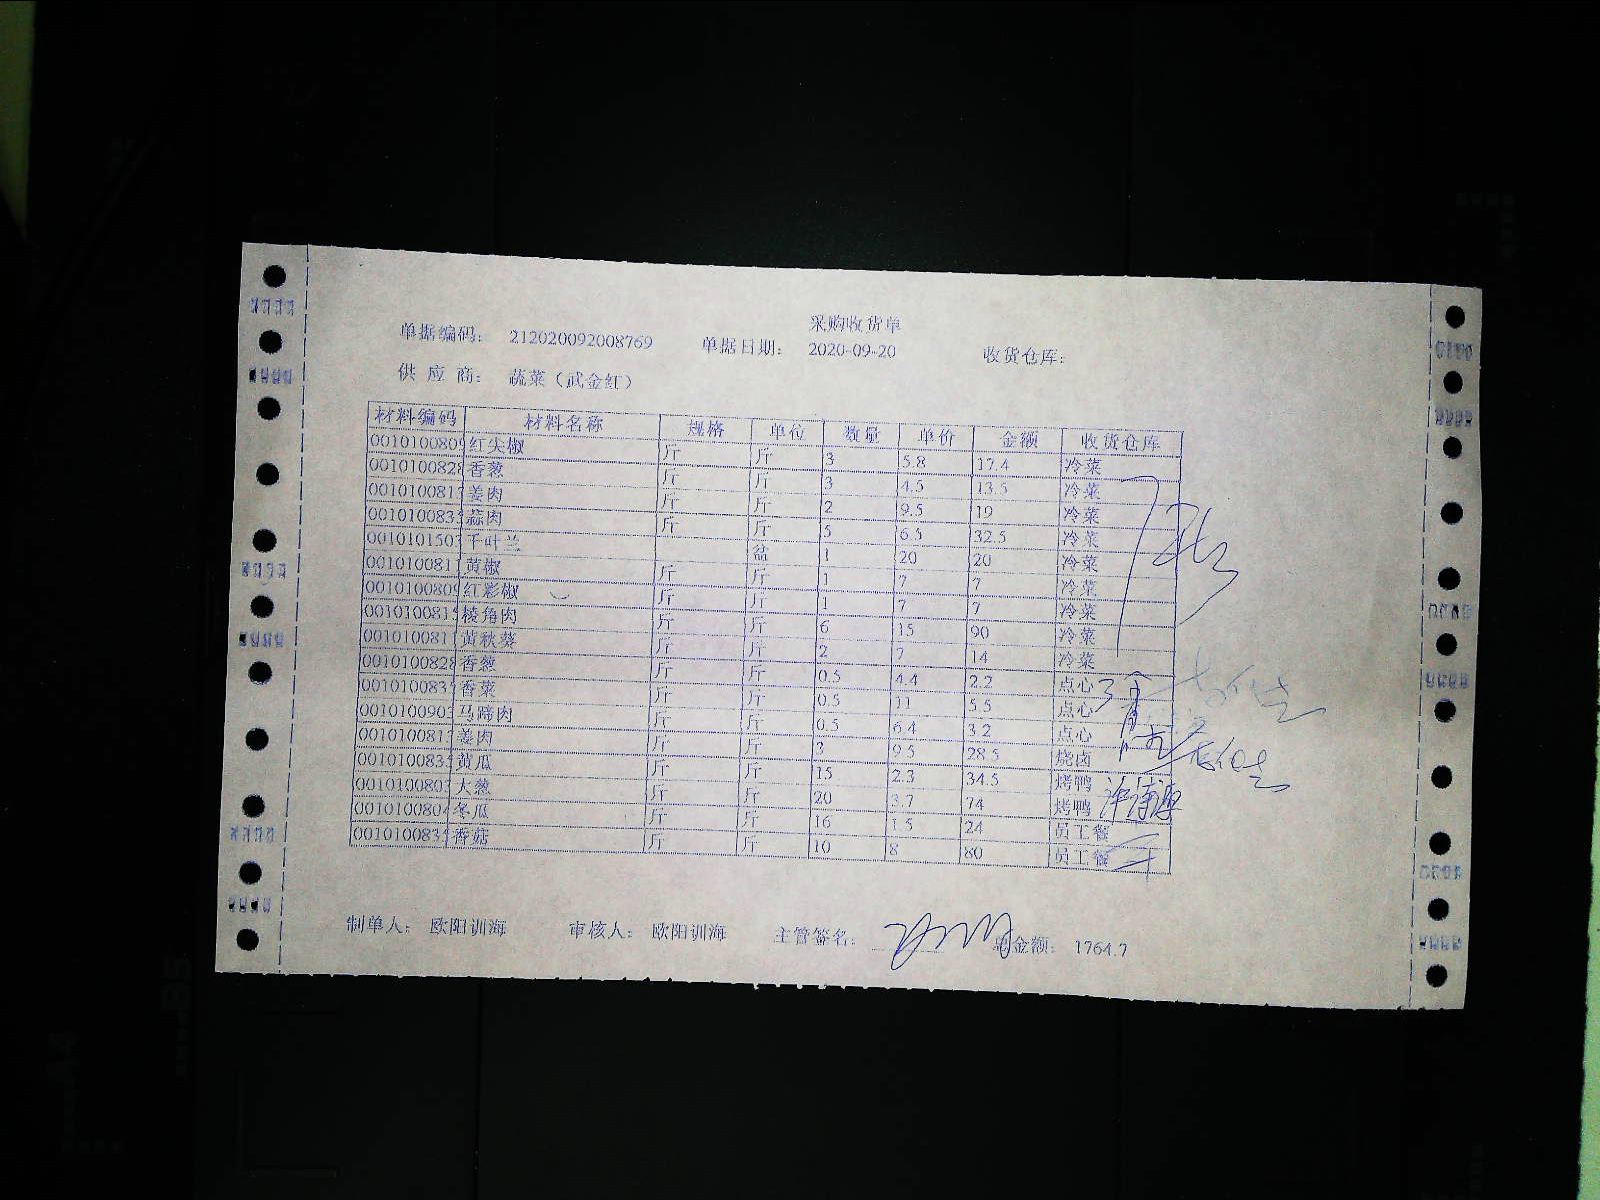 采购收货单
单据编码： 212020092008769 单据日期： 2020-09-20 收货仓库：
供 应 商： 蔬菜（武金红）
材料编码 材料名称 规格 单位 数量 单价 金额 收货仓库
0010100809 红尖椒 斤 斤 3 5.8 17.4 冷菜
0010100828 香葱 斤 斤 3 4.5 13.5 冷菜
001010081 姜肉 斤 斤 2 9.5 19 冷菜
001010083 蒜肉 斤 斤 5 6.5 32.5 冷菜
001010150 千叶兰 盆 1 20 20 冷菜
001010081 黄椒 斤 斤 1 7 7 冷菜
0010100809 红彩椒 斤 斤 1 7 7 冷菜
001010081 棱角肉 斤 斤 6 15 90 冷菜
001010081 黄秋葵 斤 斤 2 7 14 冷菜
0010100828 香葱 斤 斤 0.5 4.4 2.2 点心
001010083 香菜 斤 斤 0.5 11 5.5 点心
001010090 马蹄肉 斤 斤 0.5 6.4 3.2 点心
001010081 姜肉 斤 斤 3 9.5 28.5 烧卤
001010083 黄瓜 斤 斤 15 2.3 34.5 烤鸭
001010080 大葱 斤 斤 20 3.7 74 烤鸭
001010080 冬瓜 斤 斤 16 1.5 24 员工餐
001010083 香菇 斤 斤 10 8 80 员工餐
制单人： 欧阳训海 审核人： 欧阳训海 主管签名： 总金额： 1764.7